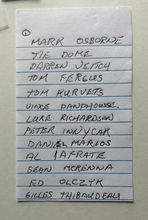 ①
MARK OSBORNE
TIE DOMI
DARREN VEITCH
TOM FERGUS
TOM KURVERS
VINCE DAMPHOUSSE
LUKE RICHARDSON
PETER INNYCAR
DANIEL MAROIS
AL IAFRATE
SEAN MCKENNA
ED OLCZYK
GILLES THIBAUDEAU